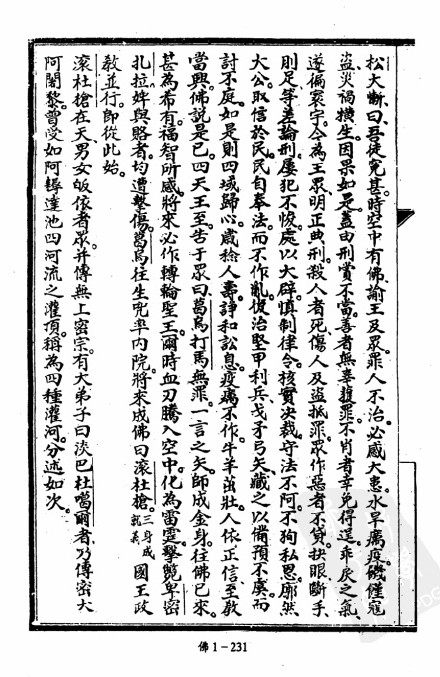 松大慚曰吾徒冤甚時空中有佛諭王及眾罪人不治必感大患水旱厲疫磯僅寇
盜災禍橫生因果如是蓋由刑賞不當善者無辜獲罪不肖者幸免得逞乖戾之氣
遂徧寰宇今為王眾明正典刑殺人者死傷人及盜抵罪眾作惡者不貸抉眼斷手
刖足等差論刑屢犯不悛處以大辟慎制律令核實決裁守法不阿不狥私恩廓然
大公取信於民民自奉法而不作亂復治堅甲利兵戈矛弓矢藏之以備預不虞而
討不庭如是則四域歸心歲稔人壽諍和訟息疫癘不作牛羊茁壯人依正信至教
當興佛說是已四天王至告于眾曰葛烏打馬無罪一言之矢師成金身往佛已來
甚為希有福智所感將來必作轉輪聖王爾時血刃騰入空中化為雷霆擊斃卑密
扎拉婢與賂者均遭擊傷葛烏往生兜率內院將來成佛曰滾杜槍三身成就義國王政
教並行即從此始
滾杜槍在天男女皈依者眾并傳無上密宗有大弟子曰淡巴杜噶爾者乃傳密大
阿闍黎曾受如阿耨達池四河流之灌頂稱為四種灌河分述如次
佛1－231